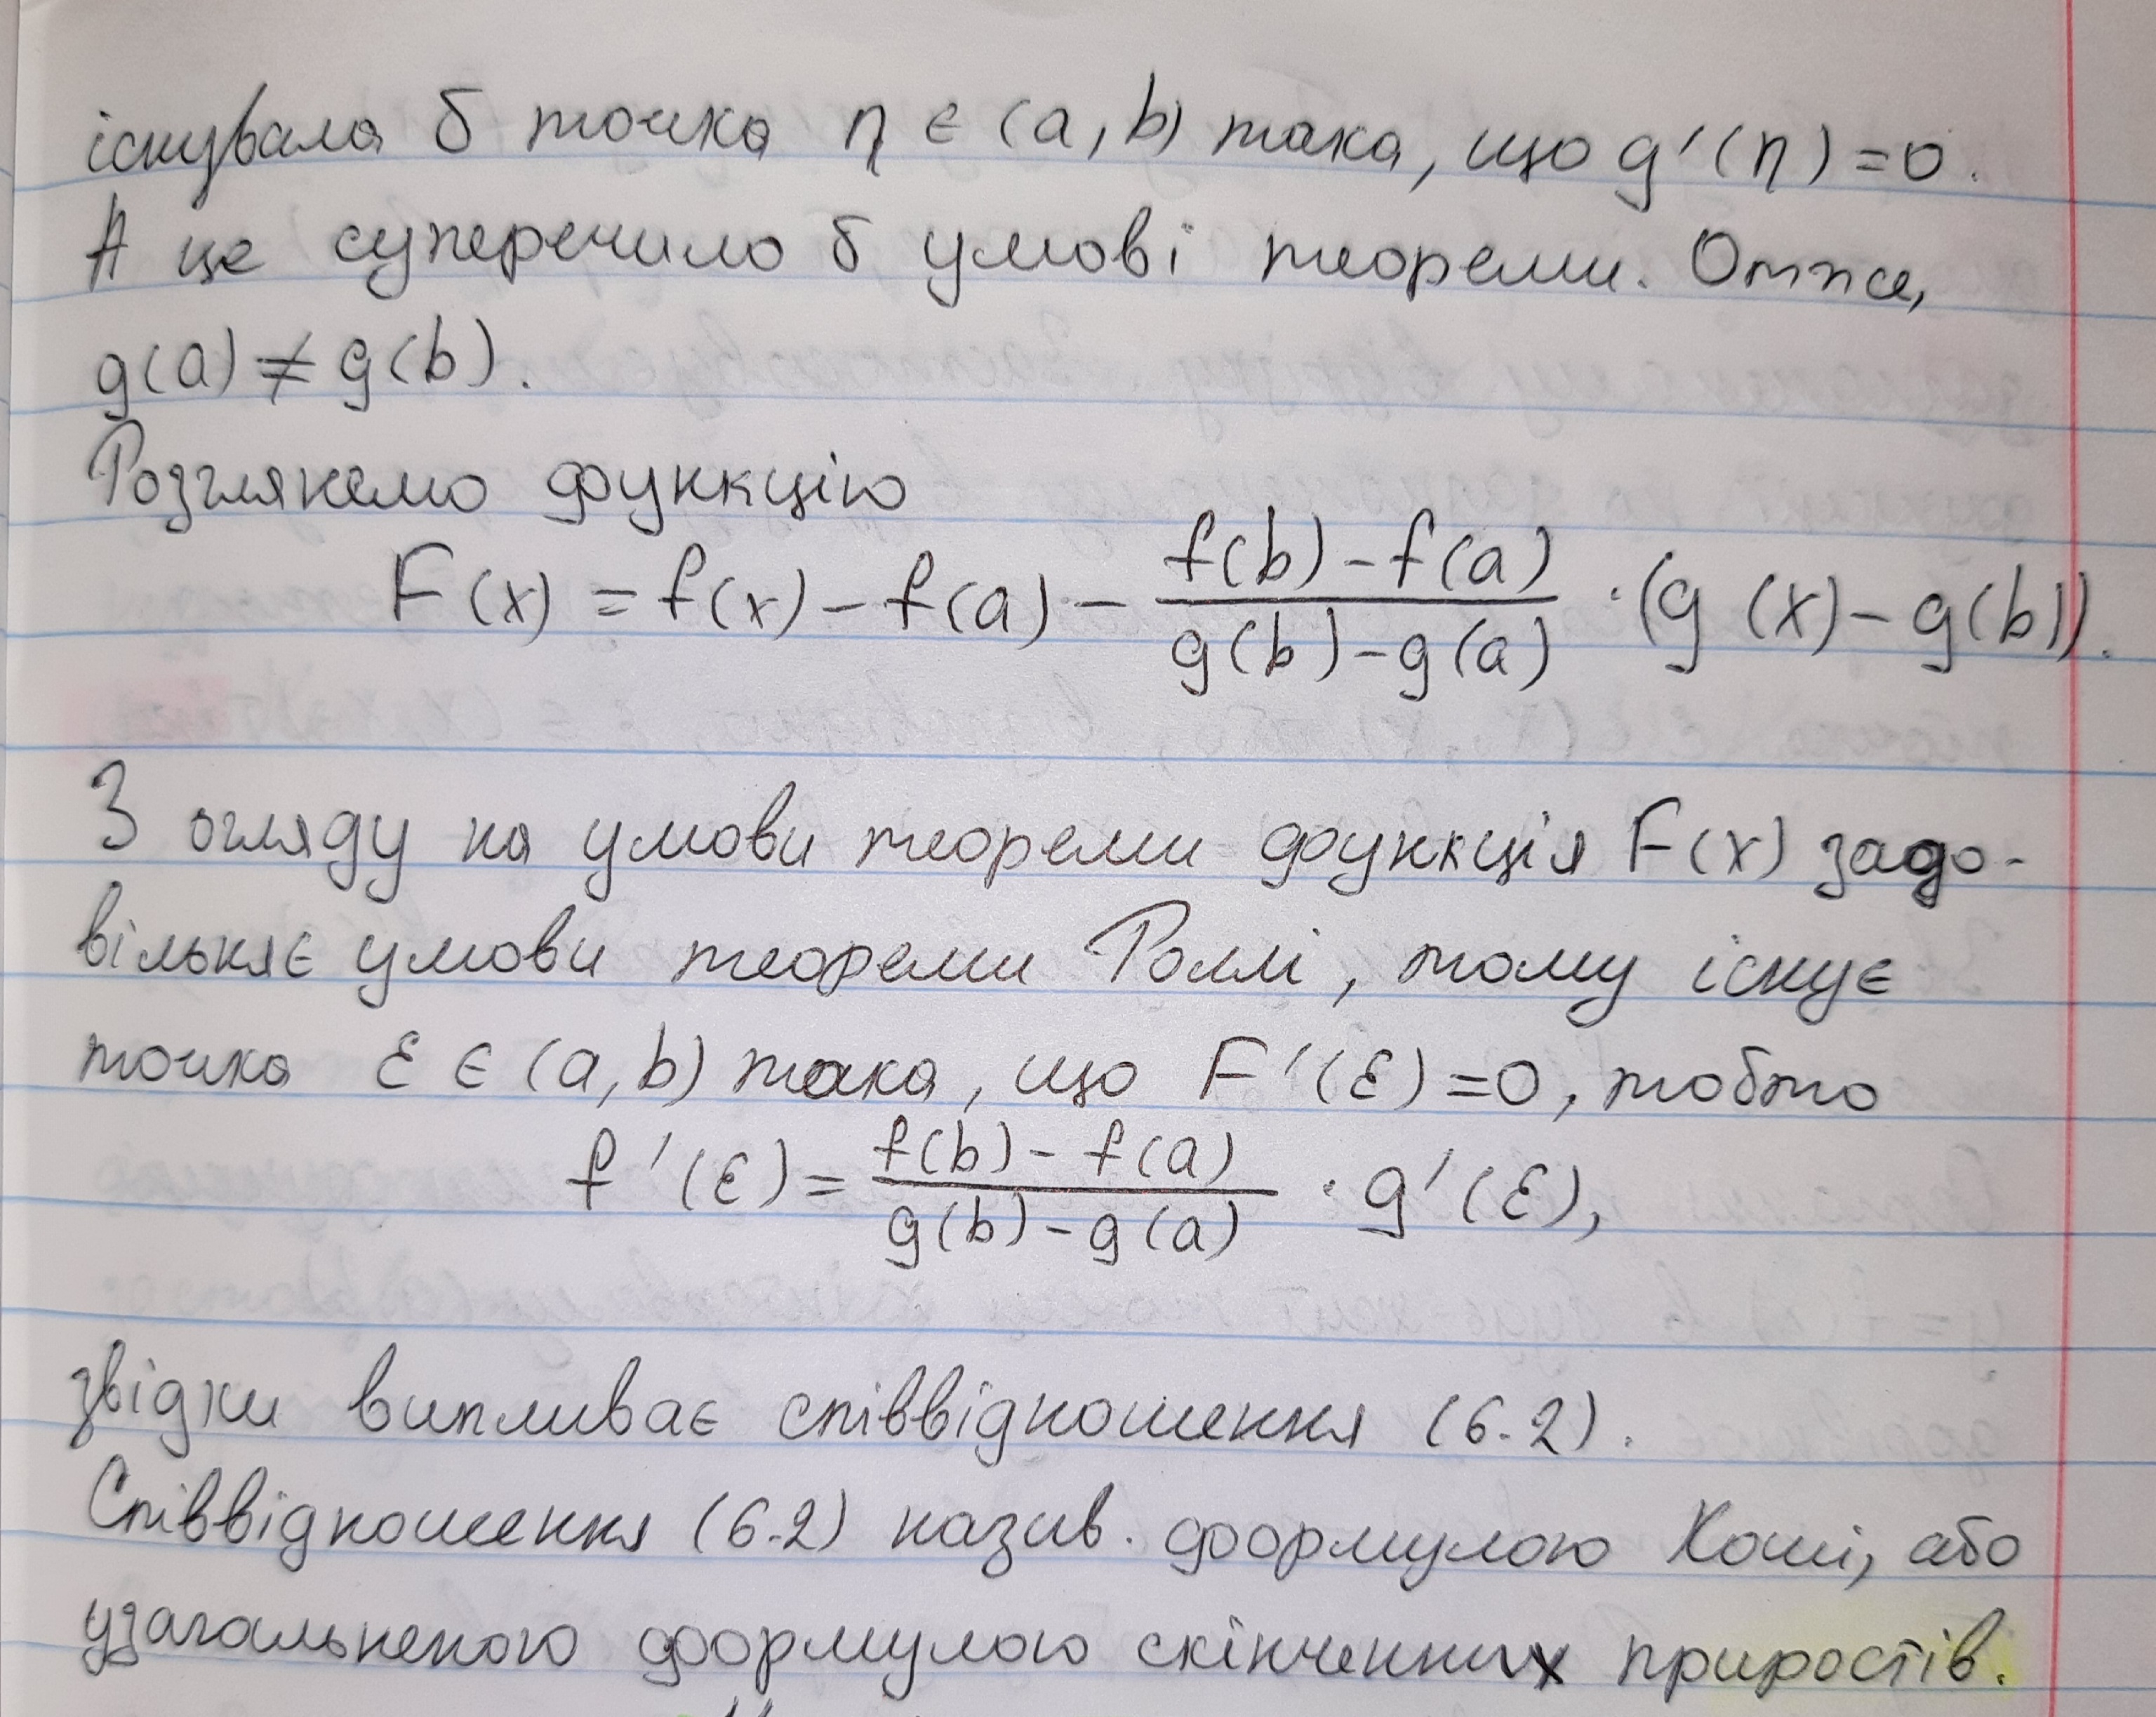 існувала б точка η ∈ (a, b) така, що g'(η) = 0.
А це суперечило б умові теореми. Отже,
g(a) ≠ g(b).
Розглянемо функцію
F(x) = f(x) - f(a) - \frac{f(b) - f(a)}{g(b) - g(a)} · (g(x) - g(b)).
З огляду на умови теореми функція F(x) задо-
вільняє умови теореми Роллі, тому існує
точка ε ∈ (a, b) така, що F'(ε) = 0, тобто
f'(ε) = \frac{f(b) - f(a)}{g(b) - g(a)} · g'(ε),
звідки випливає співвідношення (6.2).
Співвідношення (6.2) назив. формулою Коші, або
узагальненою формулою скінченних приростів.